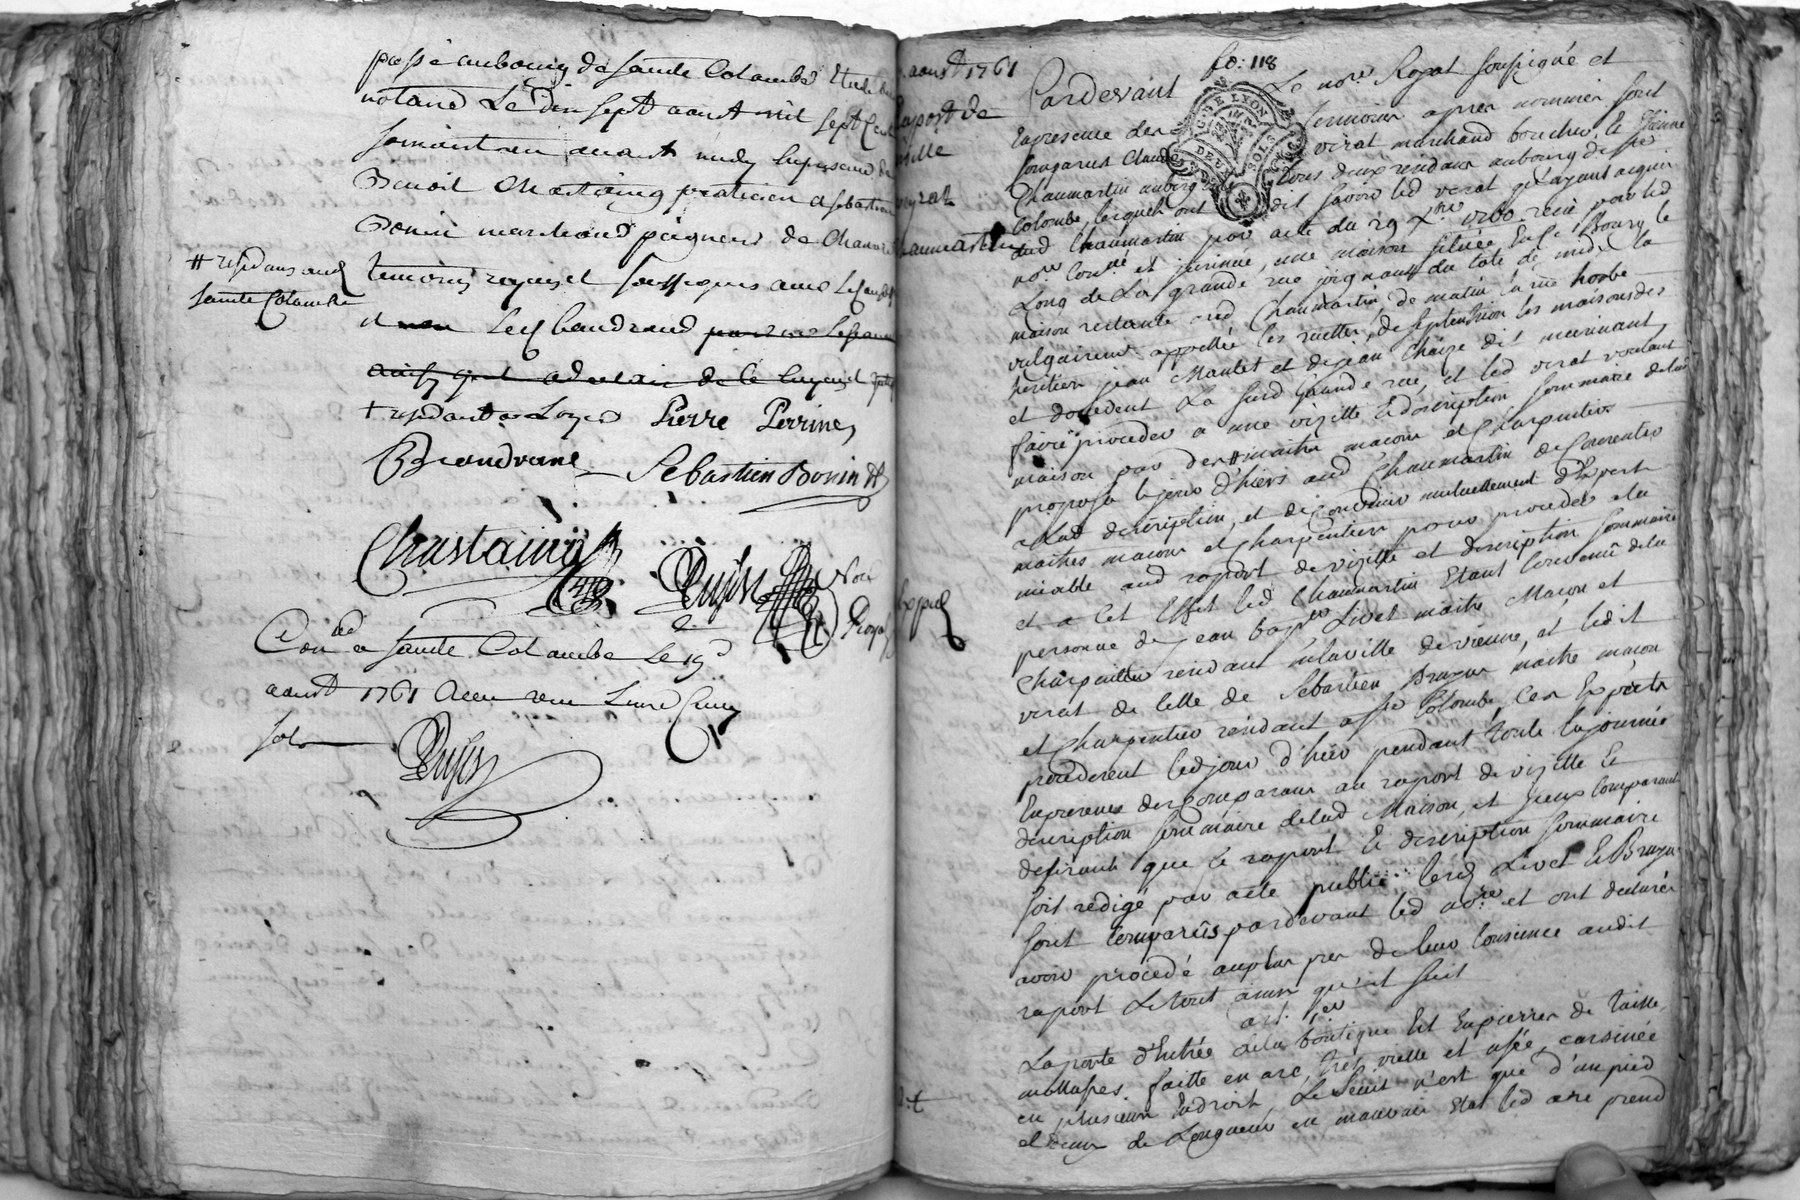 passé au bourg de Sainte Colombe Etude du
notaire Le dix sept aoust mil sept Cent
soixante un, avant midy En presence de
Benoit Chastaing praticien et Sebastien
Bonin marchand peigneur de chanvre
# residans aud
Sainte Colombe
temoins requis et soussignes avec
et Led baudrand
ainsy
+ residant a Pierre Perrine
Baudrand Sebastien Bonin
Chastaing Dujas Nore
Royal
Con.lé a Sainte Colombe Le 19e
aoust 1761 Recu
sols
Dujas
aoust 1761
raport de
ville
virat
chaumartin
Exped
fo: 118
Pardevant Le no.re Royal soussigné et
En presence des Temoins apres nommés sont
Comparus Claude virat marchand boucher, Et Etienne
Chaumartin auberg tous deux residans au bourg de Ste
Colombe, lesquels ont dit savoir led virat qu'ayant acquis
dud Chaumartin par acte du 29 X.bre 1760 recu par led
no.re et une maison située Aud. Bourg le
Long de La grande rue joignant du coté de midi la
maison restante aud Chaumartin, de matin la rue
vulgairement appellée les ruettes, de septentrion les maisons des
heritiers jean Mantet et de jean Chaize dit marinant
et d'occident La susd Grande rue, et led virat voulant
faire proceder a une vizitte Et description sommaire de lad
maison par des # maitre macons et Charpentiers
proposa le jour d'hiers aud Chaumartin de Consentir
a lad description, et de Convenir mutuellement d'Experts
maitres macons et charpentiers pour proceder a la
miable aud raport de vizitte et description sommaire
et a Cet Effet led Chaumartin Etant Convenû de la
personne de jean bap.te Livet maitre Macon et
Charpentier residant En la ville de vienne, et ledit
virat de Celle de Sebastien Bruyas maitre macon
et Charpentier residant a Ste Colombe, Ces Experts
procederent led jour d'hier pendant toute la journée
En presence des Comparans au raport de vizitte Et
description sommaire de lad Maison, et yceux Comparants
desirants que le raport Et description sommaire
soit redigé par acte public lesd Livet Et Bruyas
sont Comparûs pardevant led no.re et ont declarés
avoir procedé au plus pres de leur Consience audit
raport Le tout ainsi qu'il suit
art. 1.er
La porte d'Entrée de la boutique Est En pierres de taille
mollasses faitte en arc, tres vielle et usée,
en plusieurs Endroits, Le Seuil n'est que d'un pied
et demy de Longueur en mauvais Etat led arc prend